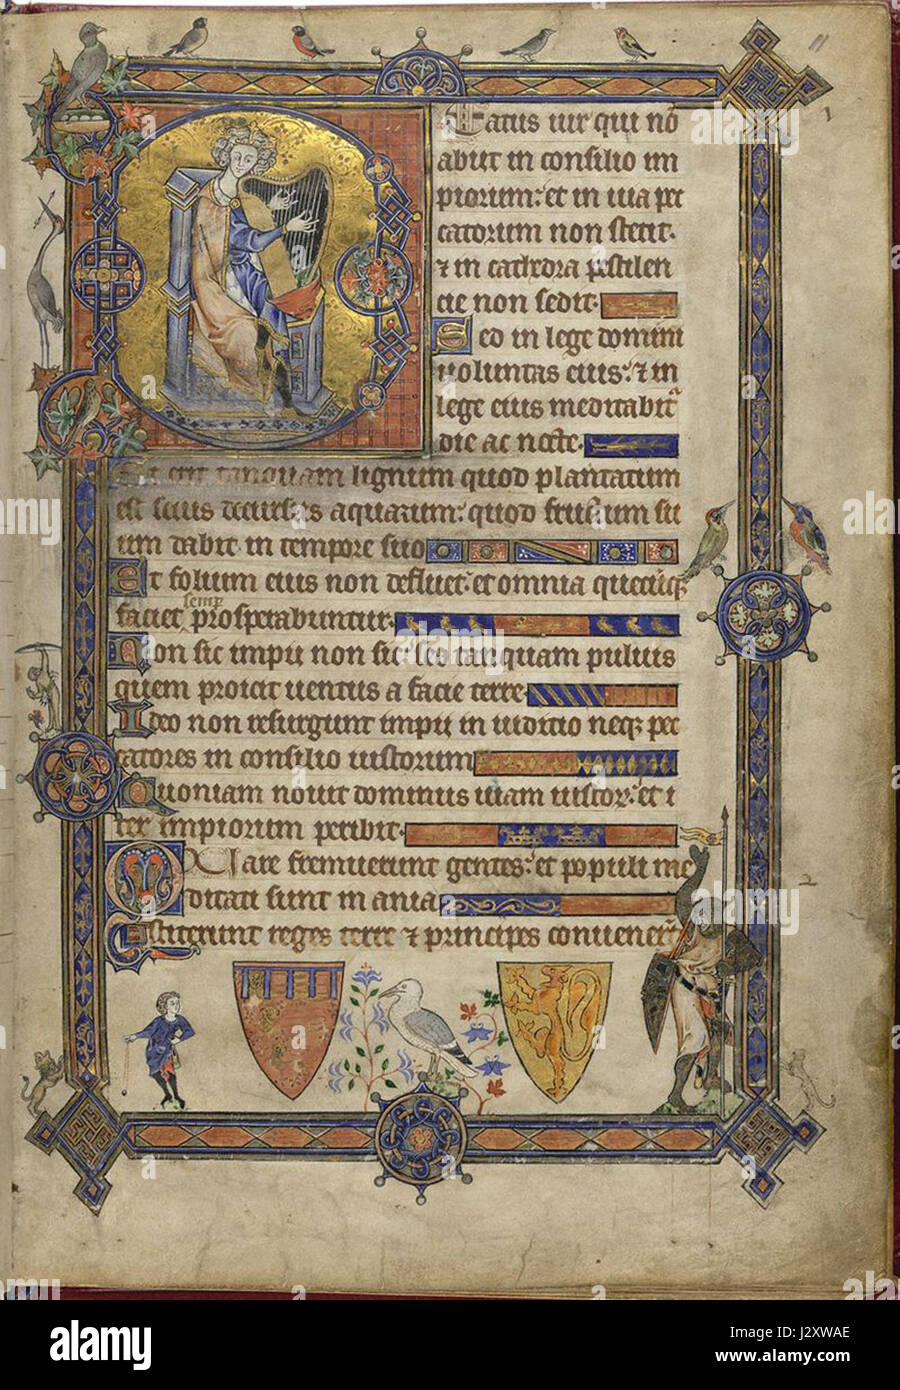 11
1
Eatus uir qui nō
abiit in consilio im
piorum: et in uia pec
catorum non stetit.
& in cathedra pestilen
cie non sedit.
Sed in lege domini
uoluntas eius: & in
lege eius meditabit᷑
die ac nocte.
Et erit tanquam lignum quod plantatum
est secus decursus aquarum: quod fructum su
um dabit in tempore suo
Et folium eius non defluet: et omnia quecūqꝫ
faciet semp prosperabuntur.
Non sic impii non sic: sed tanquam puluis
quem proicit uentus a facie terre
Ideo non resurgunt impii in iudicio neqꝫ pec
catores in consilio iustorum
Quoniam nouit dominus uiam iustor: et i
ter impiorum peribit.
QUare fremuerunt gentes: et populi me
2
ditati sunt inania
Astiterunt reges terre & principes conuener᷑
alamy
Image ID: J2XWAE
www.alamy.com